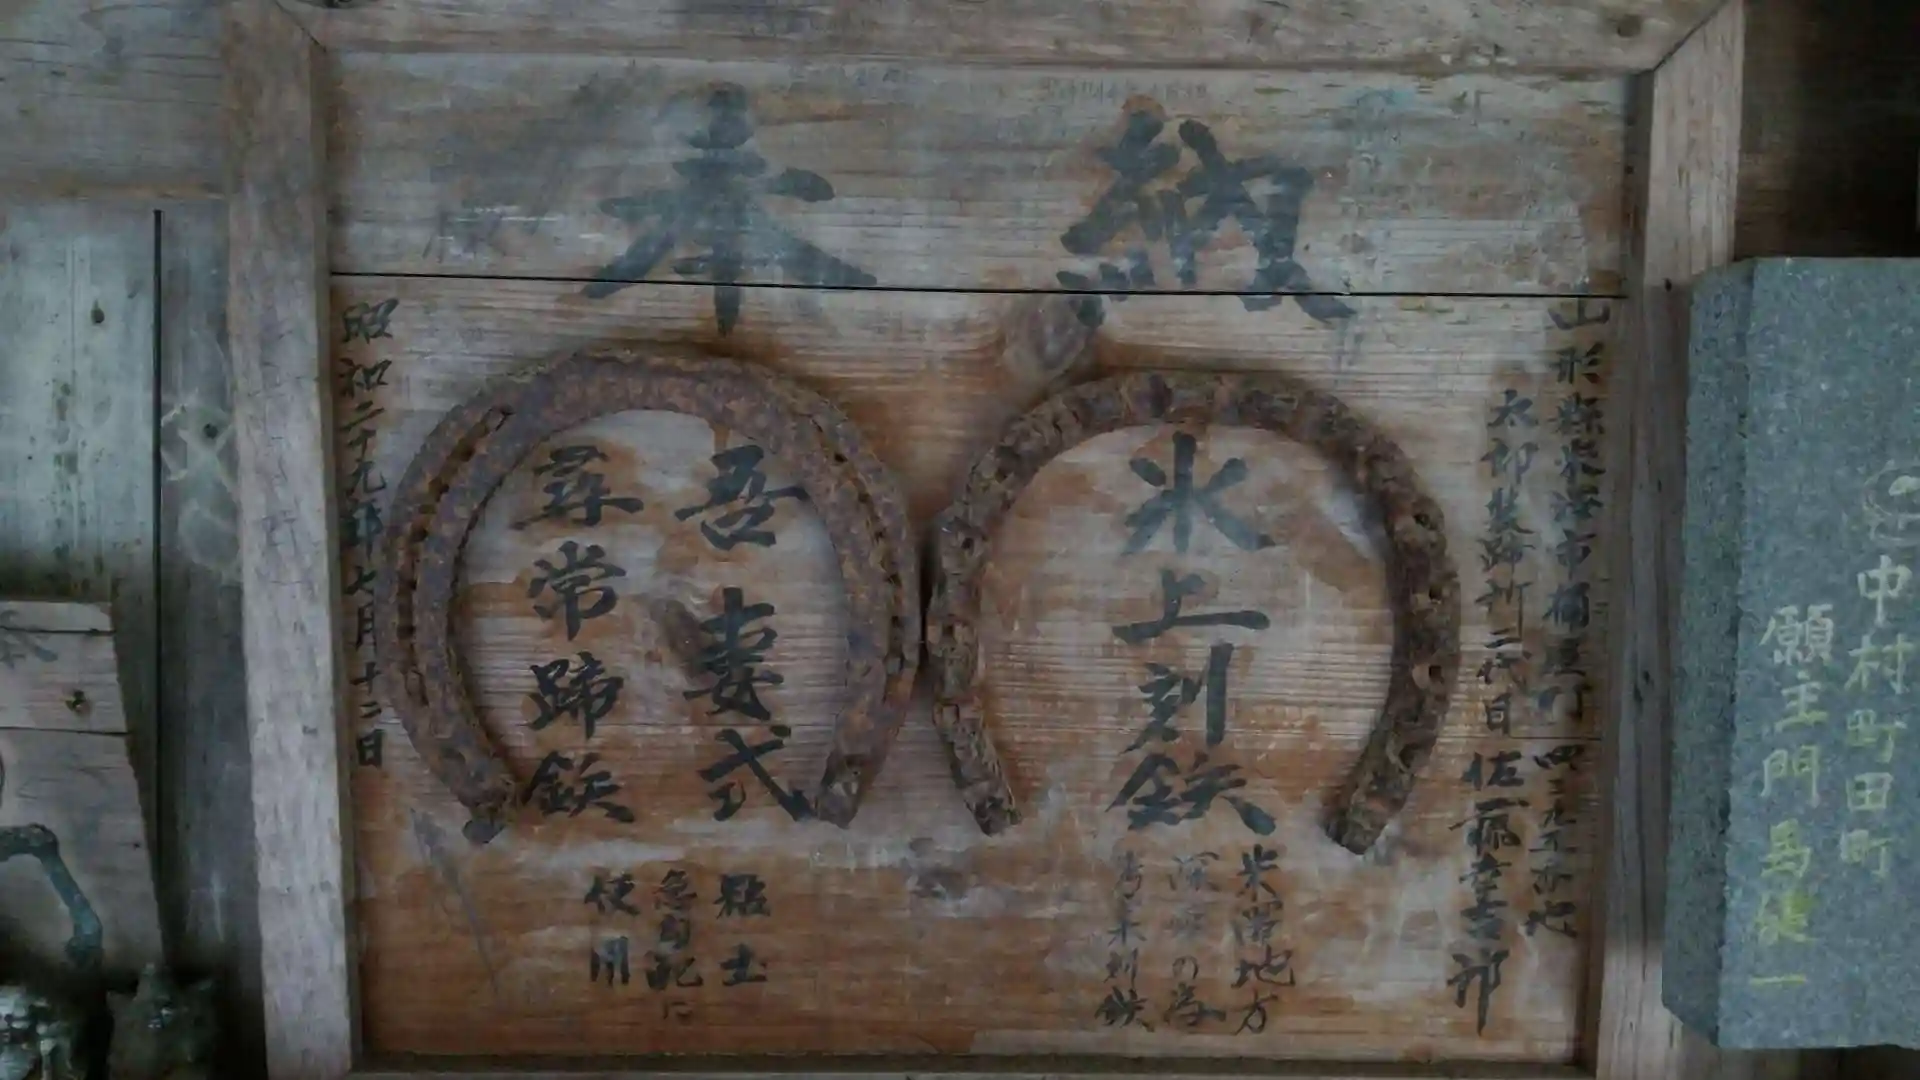 奉納
山形縣米沢市桶屋町四三九五番地
太郎装蹄所二代目
佐藤幸吉郎
氷上刻鉄
米沢地方
深雪の為
考案刻鉄
吾妻式
尋常蹄鉄
粘土
急勾配に
使用
昭和二十九年七月十二日
中村町田町
願主門馬健一